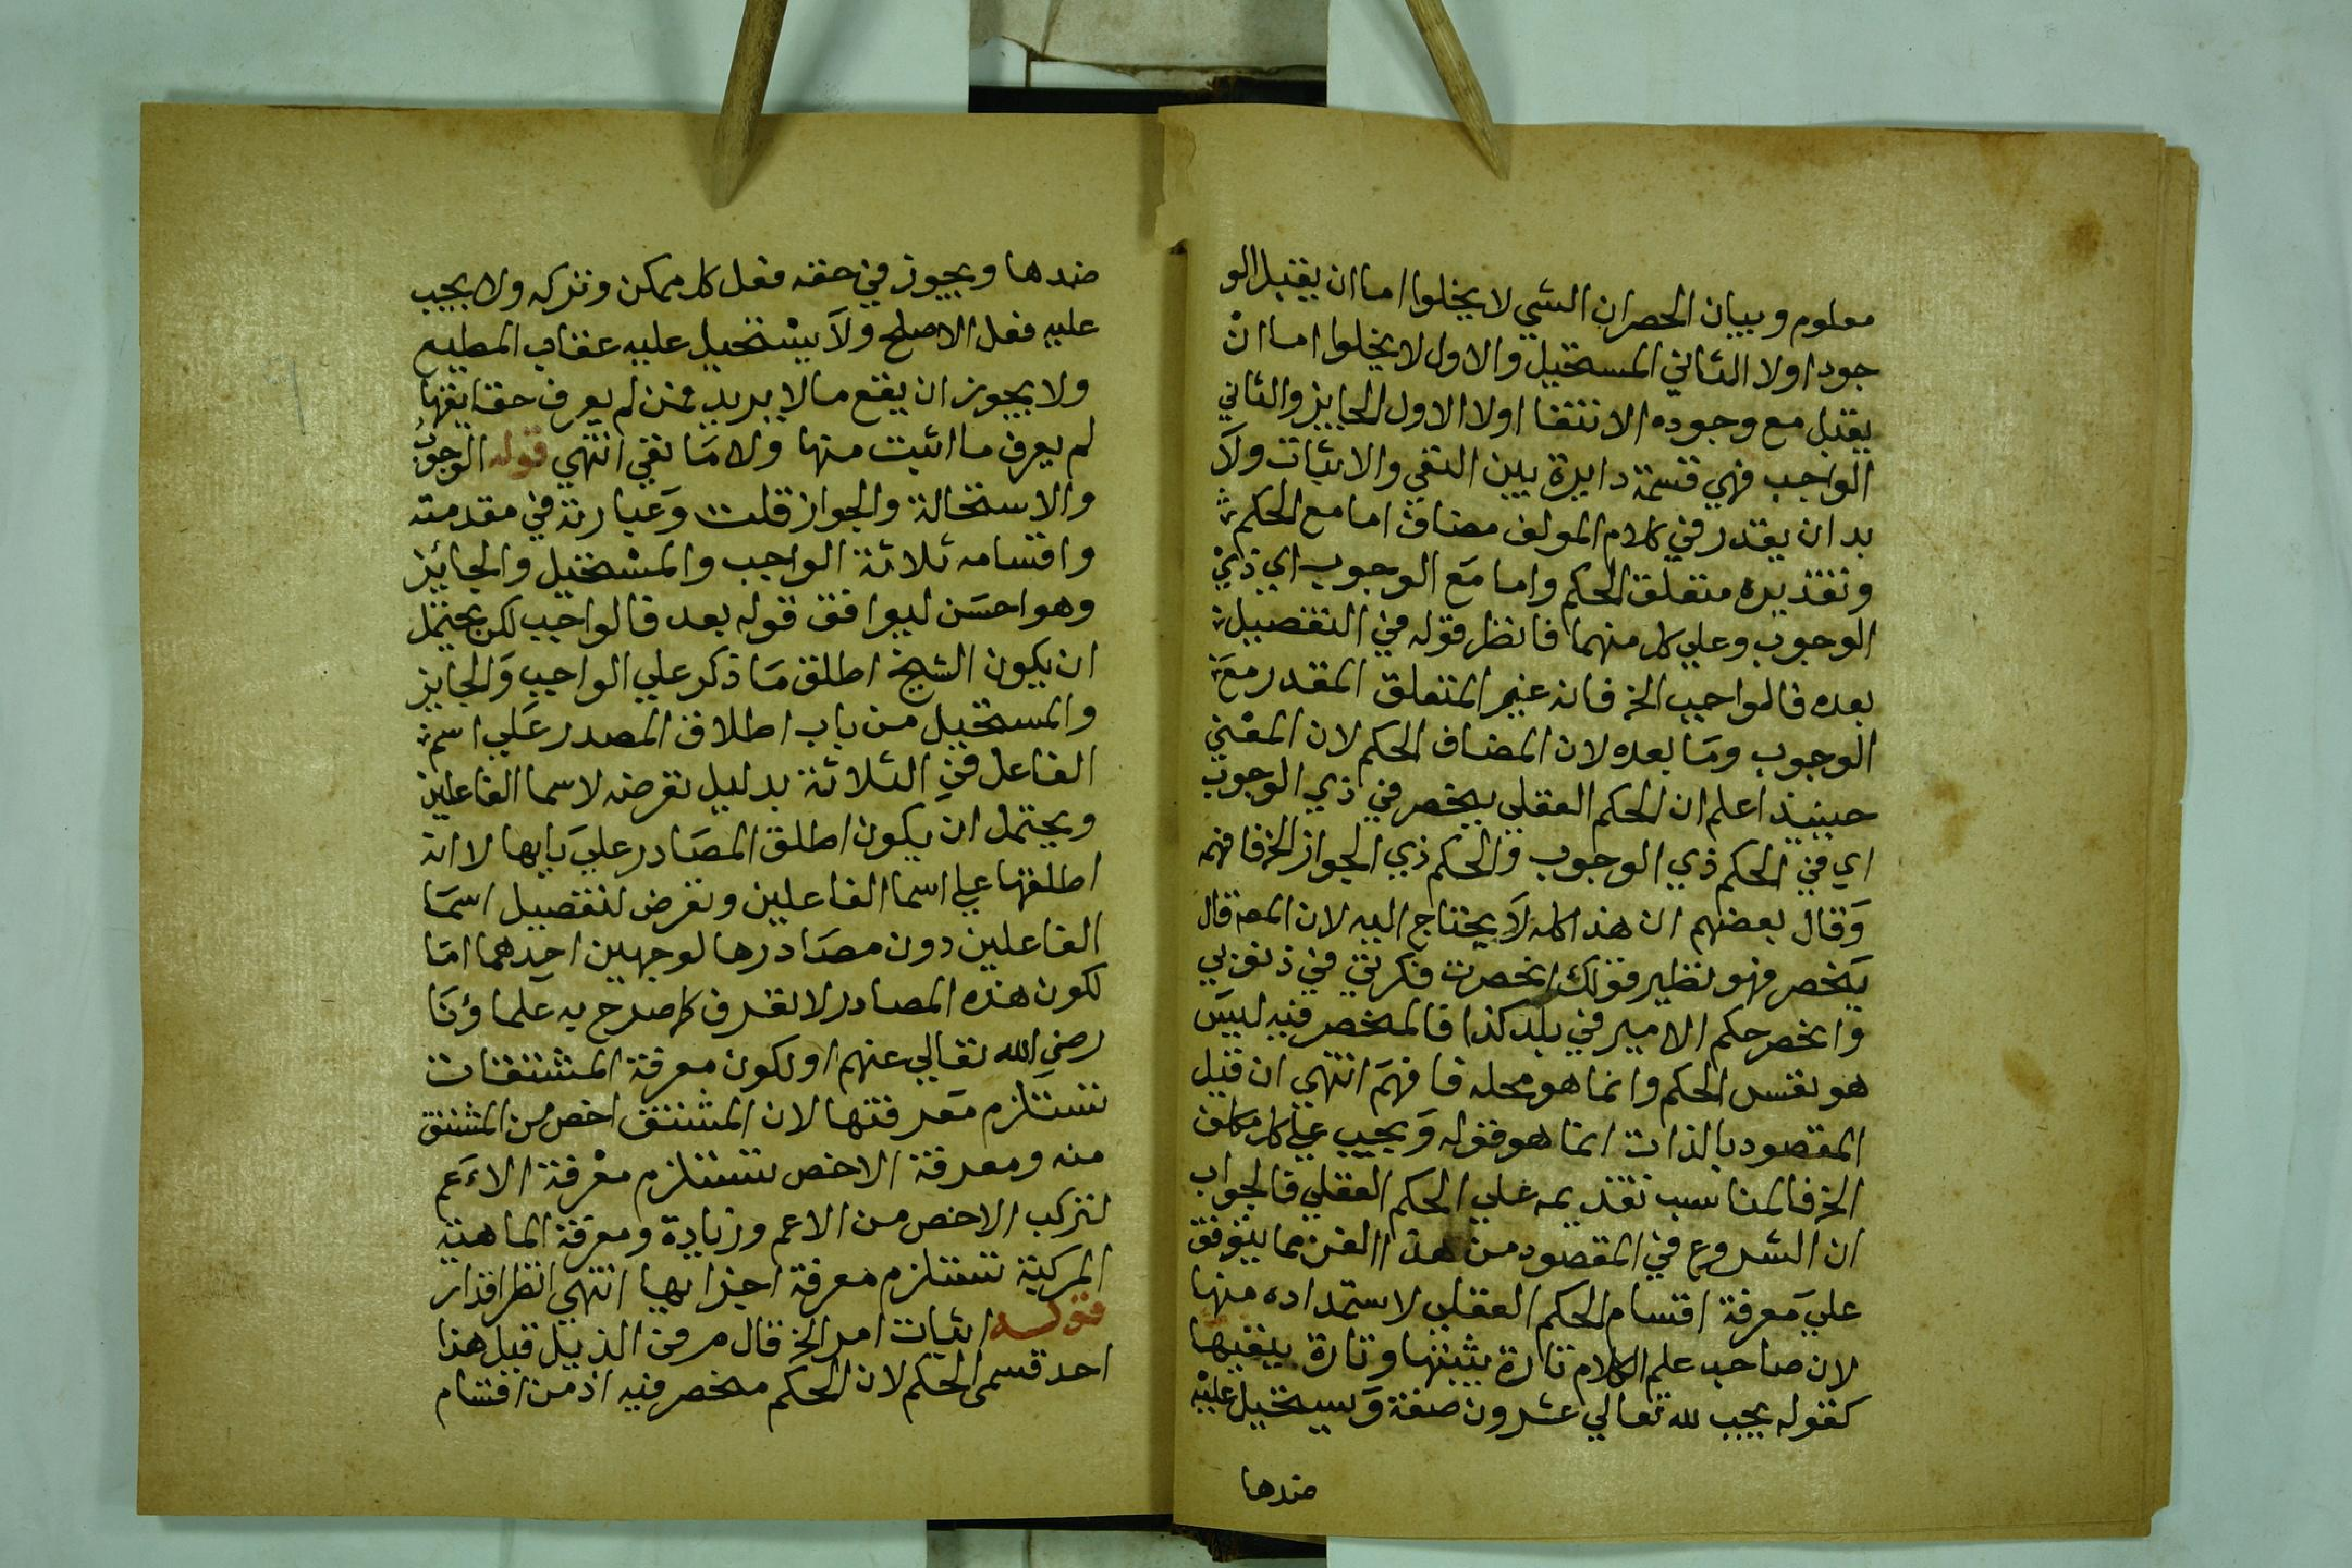 معلوم وبيان الحصر ان الشي لا يخلوا اما ان يقبل الو
جود اولا الثاني المستحيل والاول لا يخلوا اما انْ
يقبل مع وجوده الانتفا اولا الاول الجايز والثاني
الواجب فهي قسمة دايرة بين النفي والاثبات ولَا
بد ان يقدر في كلام المولف مضاف اما مع الحكم
وتقديره متعلق الحكم واما مَع الوجوب اي ذيْ
الوجوب وعلي كل منهما فانظر قوله في التفصيل
بعده فالواجب الخ فانه غير المتعلق المقدر معَ
الوجوب ومَا بعده لان المضاف الحكم لان المعْني
حينيذ اعلم ان الحكم العقلي ينحصر في ذي الوجوب
اي في الحكم ذي الوجوب والحكم ذي الجواز الخ فافهمه
وَقال بعضهم ان هذا كله لَا يحتاج اليه لان المصه قال
ينحصر فهو نظير قولك انحصرت فكرتي في ذنوبي
وانحصر حكم الامير في بلد كذا فالمنحصر فيه ليسَ
هو نفس الحكم وانما هو محله فافهمَ انتهي ان قيل
المقصود بالذات انما هو قوله وَيجب علي كل مكلف
الخ فالمناسب تقديمه علي الحكم العقلي فالجواب
ان الشروع في المقصود من هذا الفن مما يتوقف
عليَ مَعرفة اقسام الحكم العقلي لاستمداده منها
لان صاحب علم الكلام تارة يثبتها وتارة ينفيها
كقوله يجب لله تعالي عشرون صفة وَيستحيل عليْه
ضدها
ضدها ويجوز في حقه فعل كل ممكن وتركه ولا يجب
عليه فعل الاصلح ولَا يسْتحيل عليه عقاب المطيع
ولا يجوز ان يقع ما لا يريد فمن لم يعرف حقايقها
لم يعرف ما اثبت منها ولا مَا نفي انتهي قوله الوجوبُ
والاستحالة والجواز قلت وَعبارته في مقدمته
واقسامه ثلاثة الواجب والمسْتحيل والجائز
وهو احسَن ليوافق قوله بعد فالواجب لكن يحتمل
ان يكون الشيخ اطلق مَا ذكر علي الواجب وَالجايز
والمستحيل من باب اطلاق المصدر عَلي اسم
الفاعل في الثلاثة بدليل تعرضه لاسما الفاعلين
ويحتمل ان يكون اطلق المصَادر عليَ بابها لا انه
اطلقها علي اسما الفاعلين وتعرض لتفصيل اسمَا
الفاعلين دون مصَادرها لوجهين احدهما امّا
لكون هذه المصادر لا تعرف كما صرح به عَلماؤنَا
رضي الله تعالي عنهم او لكون معرفة المشتقات
تستَلزم مَعرفتها لان المشتق اخص من المشتق
منه ومعرفة الاخص تستلزم معْرفة الاَعَم
لتركب الاخص من الاعم وزيادة ومعرفة الماهية
المركبة تستلزم معرفة اجزايها انتهي انظر اقدار
قوله اثبات امر الخ قال م ر في الذييل قبل هذا
احد قسمي الحكم لان الحكم منحصر فيه اذ من اقسام